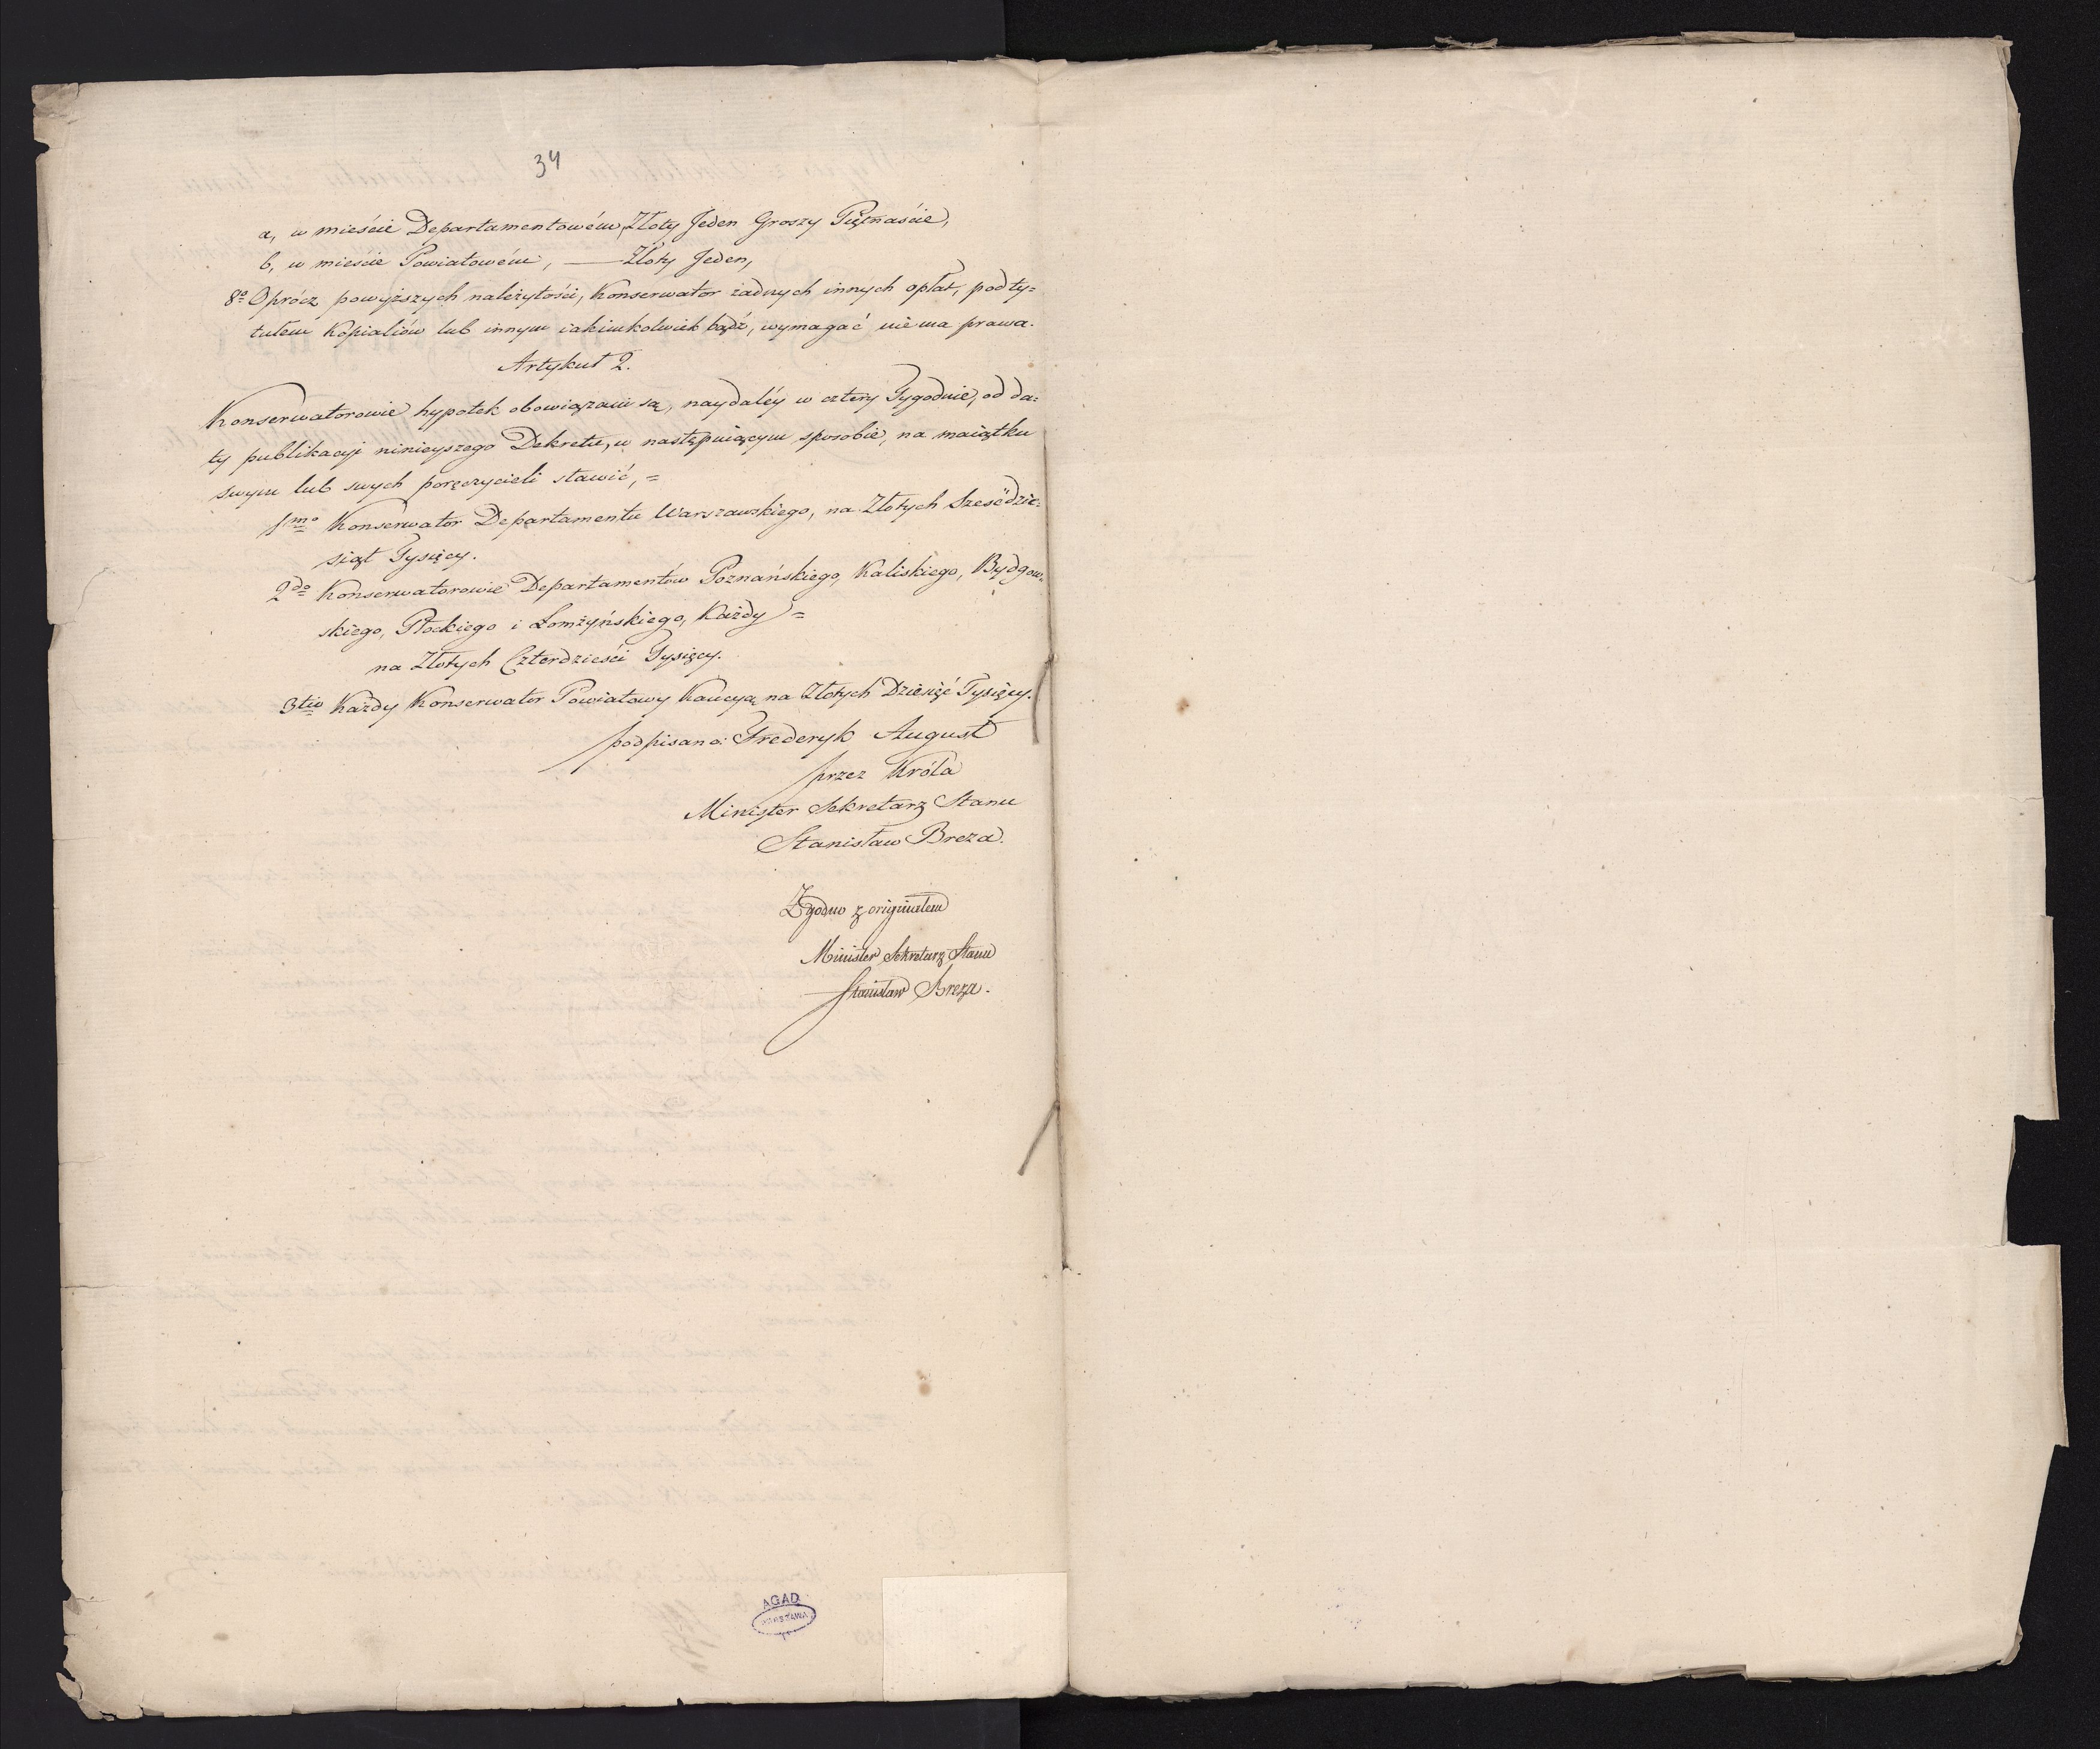 34
a, w mieście Departamentowém, Złoty Jeden Groszy Piętnaście,
b, w mieście Powiatowém, — Złoty Jeden,
8º Oprócz powyższych należytości, Konserwator żadnych innych opłat, pod ty=
tułem Kopialiów lub innym iakimkolwiek bądź, wymagać nie ma prawa.
Artykuł 2.
Konserwatorowie hypotek obowiązani są, naydaléy w cztery Tygodnie, od da=
ty publikacyi ninieyszego Dekretu, w następuiącym sposobie, na maiątku
swym lub swych poręczycieli stawić, =
1mo Konserwator Departamentu Warszawskiego, na Złotych Sześćdzie=
siąt Tysięcy.
2do Konserwatorowie Departamentów Poznańskiego, Kaliskiego, Bydgow=
skiego, Płockiego i Łomżyńskiego, Każdy =
na Złotych Czterdzieści Tysięcy.
3tio Każdy Konserwator Powiatowy Kaucyą na Złotych Dziesięć Tysięcy.
podpisano: Frederyk August
przez Króla
Minister Sekretarz Stanu
Stanisław Breza.
Zgodno z originałem
Minister Sekretarz Stanu
Stanisław Breza.
AGAD
WARSZAWA